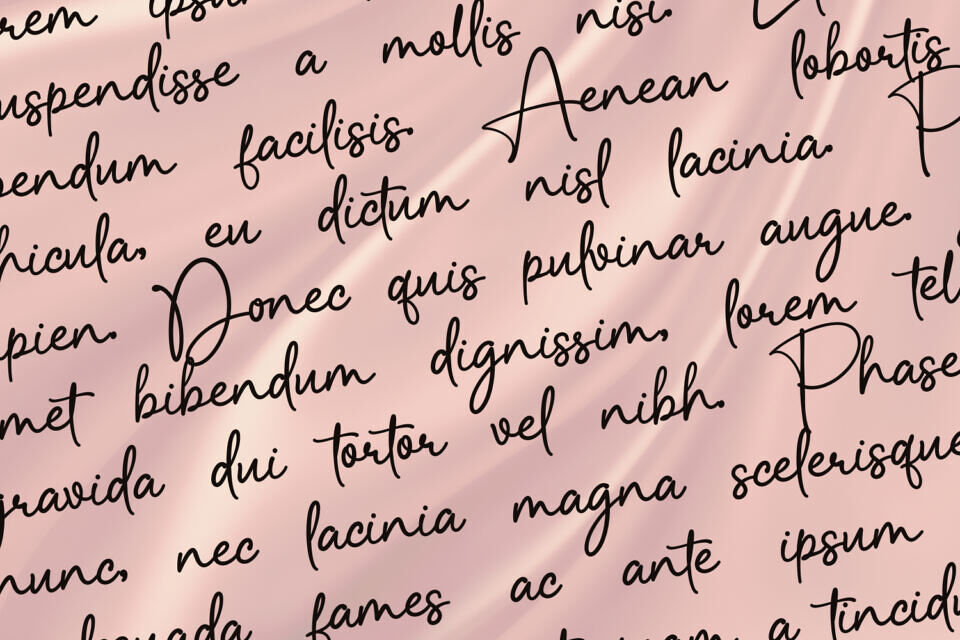 rem ipsum
uspendisse a mollis nisi.
bendum facilisis. Aenean lobortis
hicula, eu dictum nisl lacinia. P
pien. Donec quis pulvinar augue.
met bibendum dignissim, lorem tel
gravida dui tortor vel nibh. Phase
nunc, nec lacinia magna scelerisque
fames ac ante ipsum
a tincidu